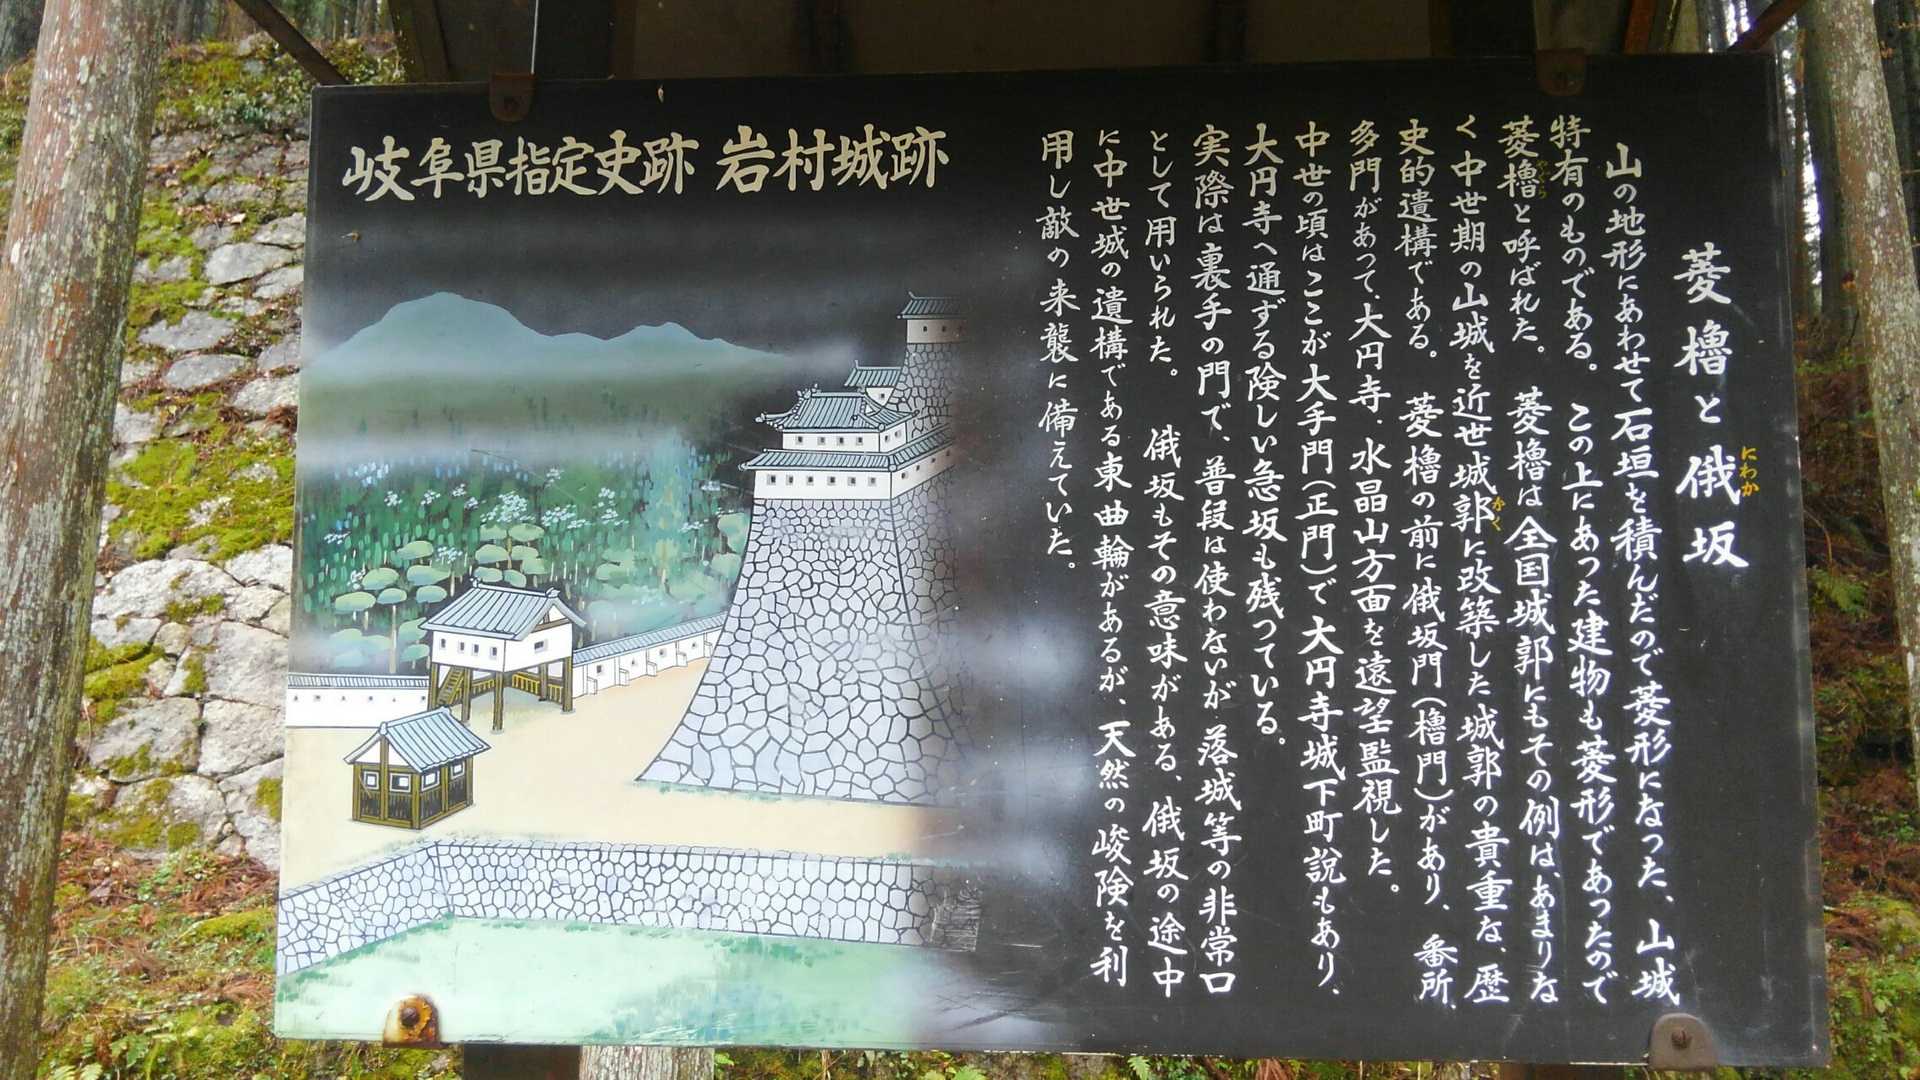 岐阜県指定史跡 岩村城跡
菱櫓と俄坂
にわか
山の地形にあわせて石垣を積んだので菱形になった、山城
特有のものである。この上にあった建物も菱形であったので
菱櫓と呼ばれた。 菱櫓は全国城郭にもその例は、あまりな
やぐら
く中世期の山城を近世城郭に改築した城郭の貴重な、歴
かく
史的遺構である。 菱櫓の前に俄坂門(櫓門)があり、番所、
多門があって、大円寺、水晶山方面を遠望監視した。
中世の頃はここが大手門(正門)で大円寺城下町説もあり、
大円寺へ通ずる険しい急坂も残っている。
実際は裏手の門で、普段は使わないが落城等の非常口
として用いられた。 俄坂もその意味がある、俄坂の途中
に中世城の遺構である東曲輪があるが、天然の峻険を利
用し敵の来襲に備えていた。